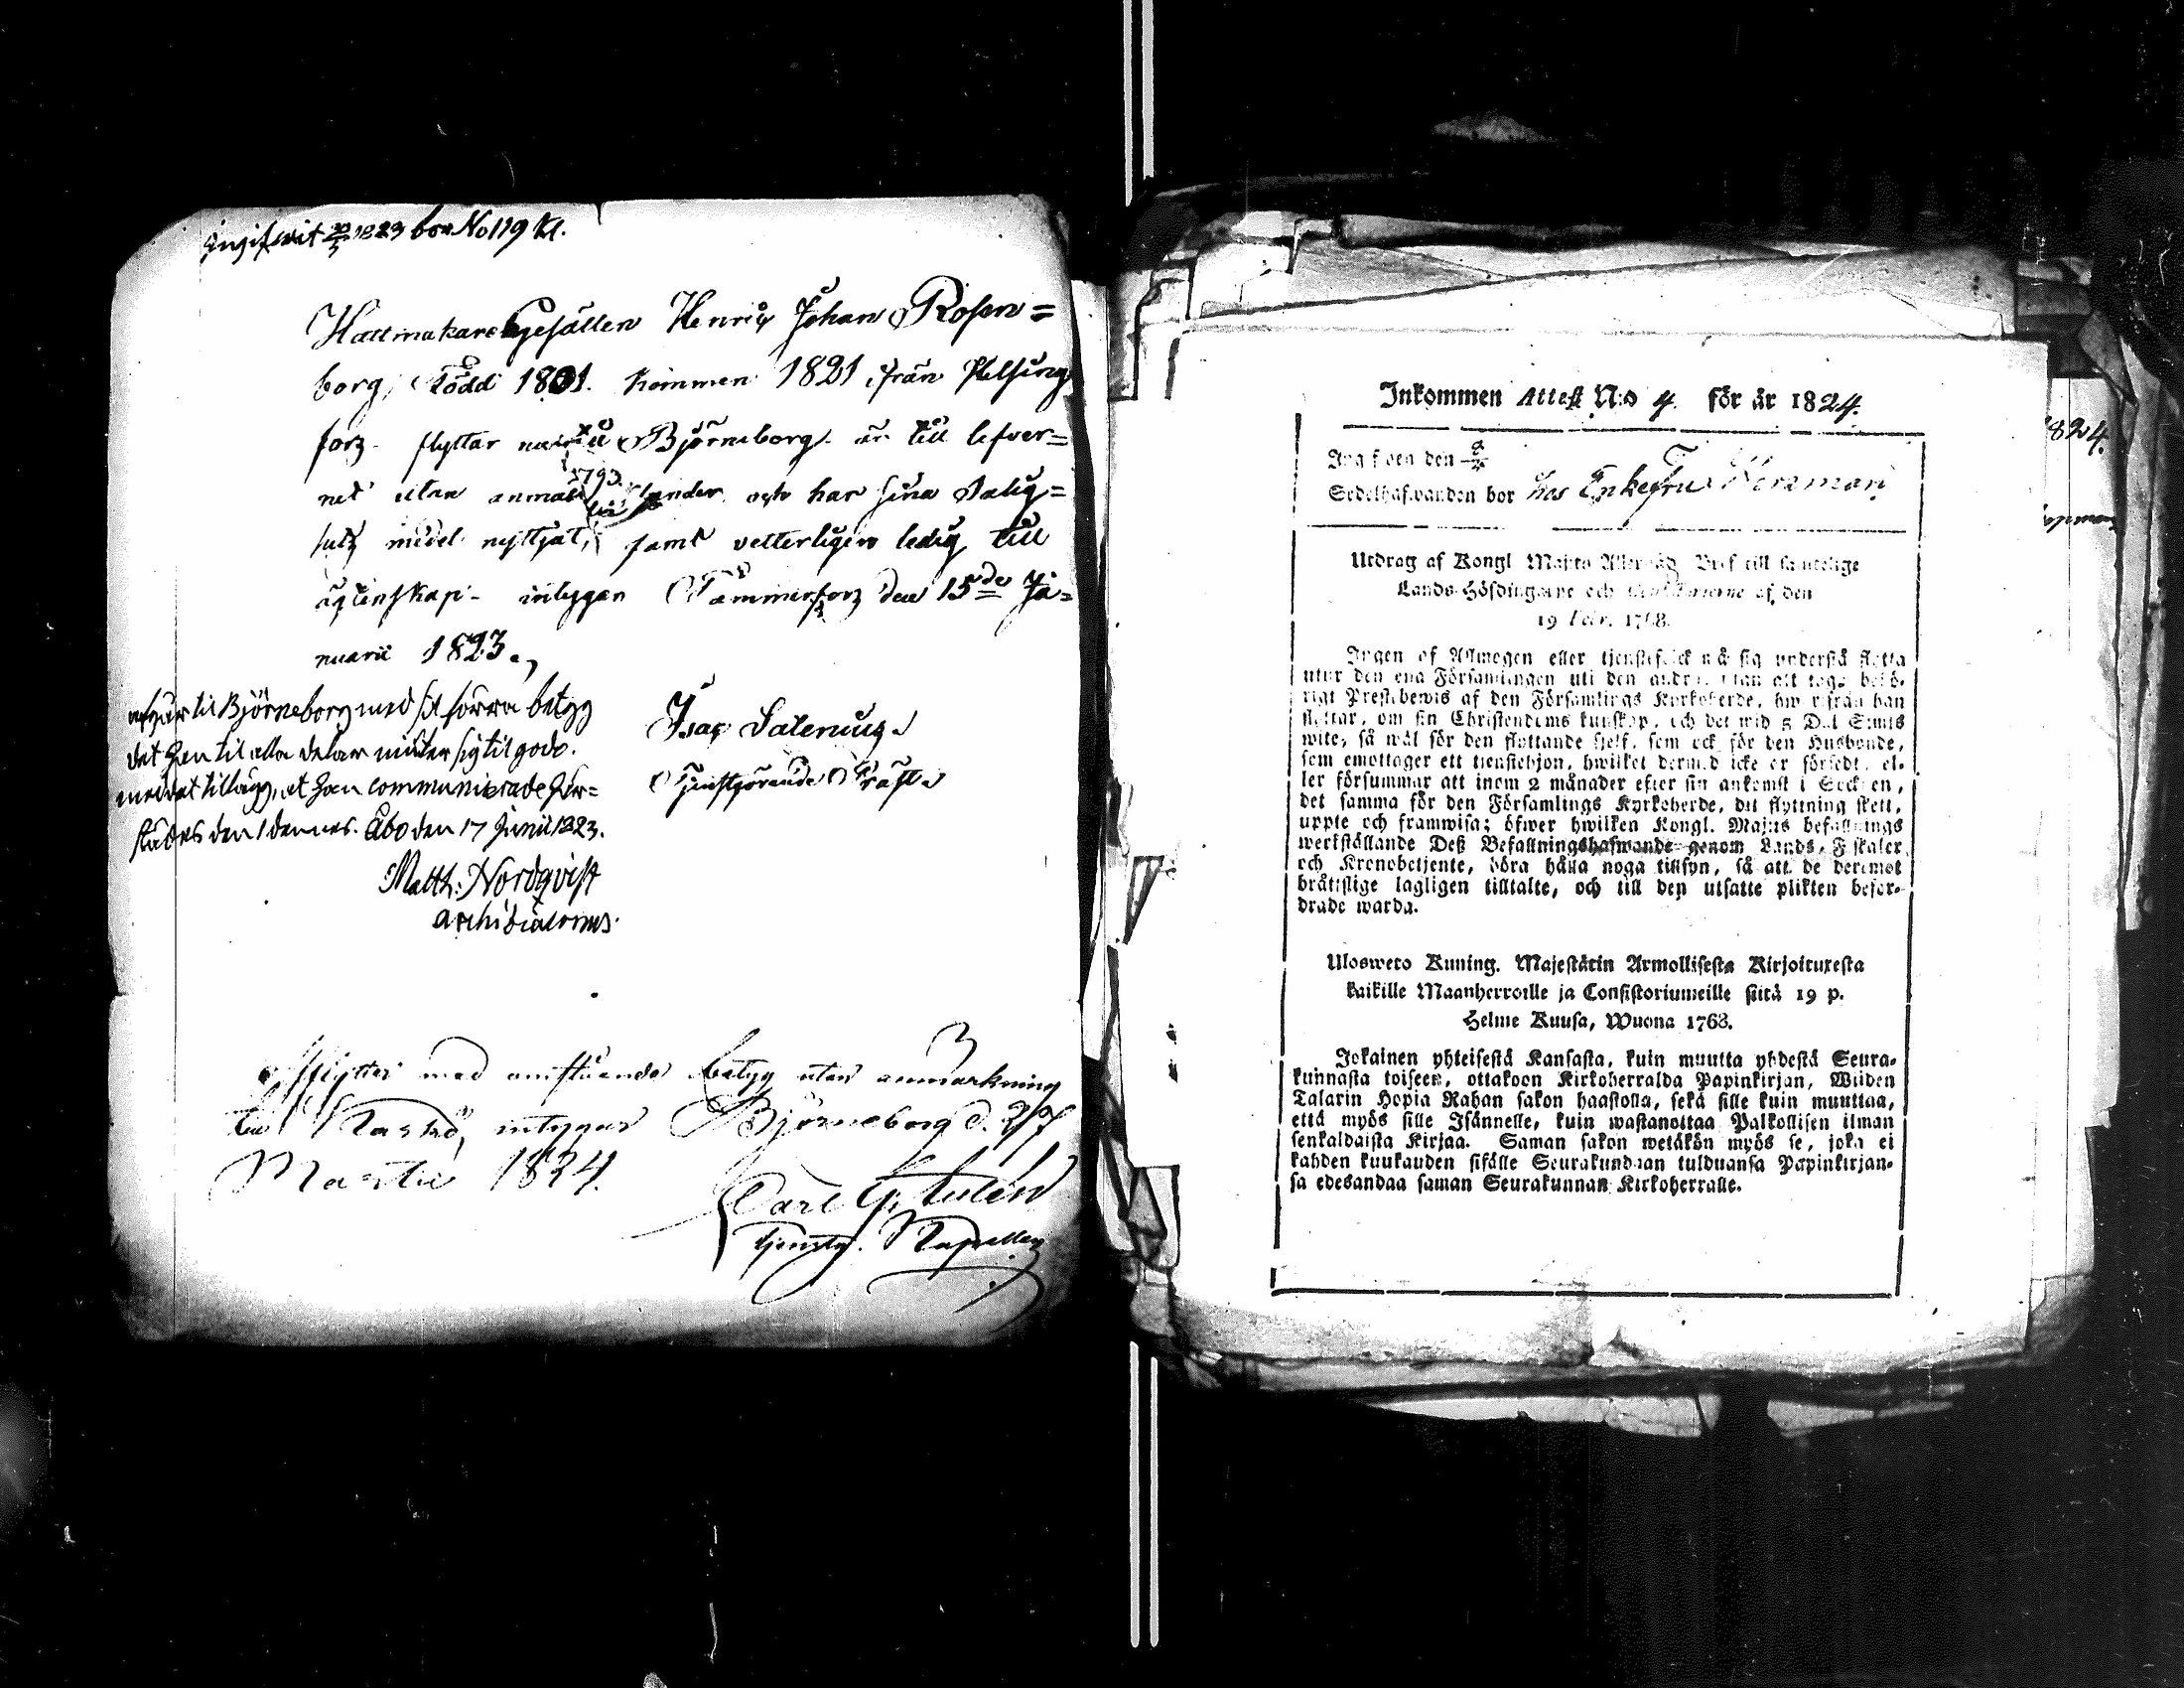 Ingifwit 20/3 1823 bor No 119 Kl.
Hattmakare Gesällen Henric Johan Rosen=
borg, född 1801. kommen 1821 ifrån Helsing
fors. flyttar Björneborg. är till lefver=
net utan och har sina Salig=
hets medel nyttjat, samt vetterligen ledig till
ägtenskap. intygar Tammerfors den 15de Ja=
nuarii 1823.
Isac Salenius
Tjenstgörande Präst
afgår til Björneborg med sit förra betyg
det han til alla delar sig til godo.
med det tillägg, at han communicerade här=
städes den 1 dennes. Åbo den 17 Junii 1823.
Matth: Nordqvist
archidiaconus.
3
Afflyttar med omstående betyg utan anmärkning
till Kaskö, intygar Björneborg d. 27
Martii 1824.
Carl G.
tjenstg. Kapellan
Inkommen Attest N:o 4. för år 1824.
Ing f ven den
Sedelhafwanden bor hos Enkefru
Utdrag af Kongl Maj:ts Bref till samtelige
Lands-Höfdingarne och af den
19 Febr. 1768.
Ingen af Allmogen eller tjenstefolck må sig understå flytta
utur den ena Församlingen uti den andra utan att taga behö-
rigt Prestebewis af den Församlings Kyrkoherde, hwarifrån han
flyttar, om sin Christendoms kunskap, och det wid 5 Dal S:mts
wite, så wäl för den flyttande sjelf, som ock för den Husbonde,
som emottager ett tienstehjon, hwilket dermed icke er försedt, el-
ler försummar att inom 2 månader efter sin ankomst i Socknen,
det samma för den Församlings Kyrkoherde, dit flyttning skett,
uppte och framwisa; öfwer hwilken Kongl. Maj:ts befallnings
werkställande Deß Befallningshafwande genom Lands, Fiskaler
och Kronobetjente, böra hålla noga tillsyn, så att de deremot
bråttslige lagligen tilltalte, och till den utsatte plikten befor-
drade warda.
Ulosweto Kuning. Majestätin Armollisesta Kirjoituxesta
kaikille Maanherroille ja Consistoriumeille siitä 19 p.
Helme Kuusa, Wuona 1768.
Jokainen yhteisestä Kansasta, kuin muutta yhdestä Seura-
kunnasta toiseen, ottakoon Kirkoherralda Papinkirjan, Wiiden
Talarin Hopia Rahan sakon haastolla, sekä sille kuin muuttaa,
että myös sille Isännelle, kuin wastanottaa Palkollisen ilman
senkaldaista Kirjaa. Saman sakon wetäkön myös se, joka ei
kahden kuukauden sisälle Seurakundaan tulduansa Papinkirjan-
sa edesandaa saman Seurakunnan Kirkoherralle.
1824.